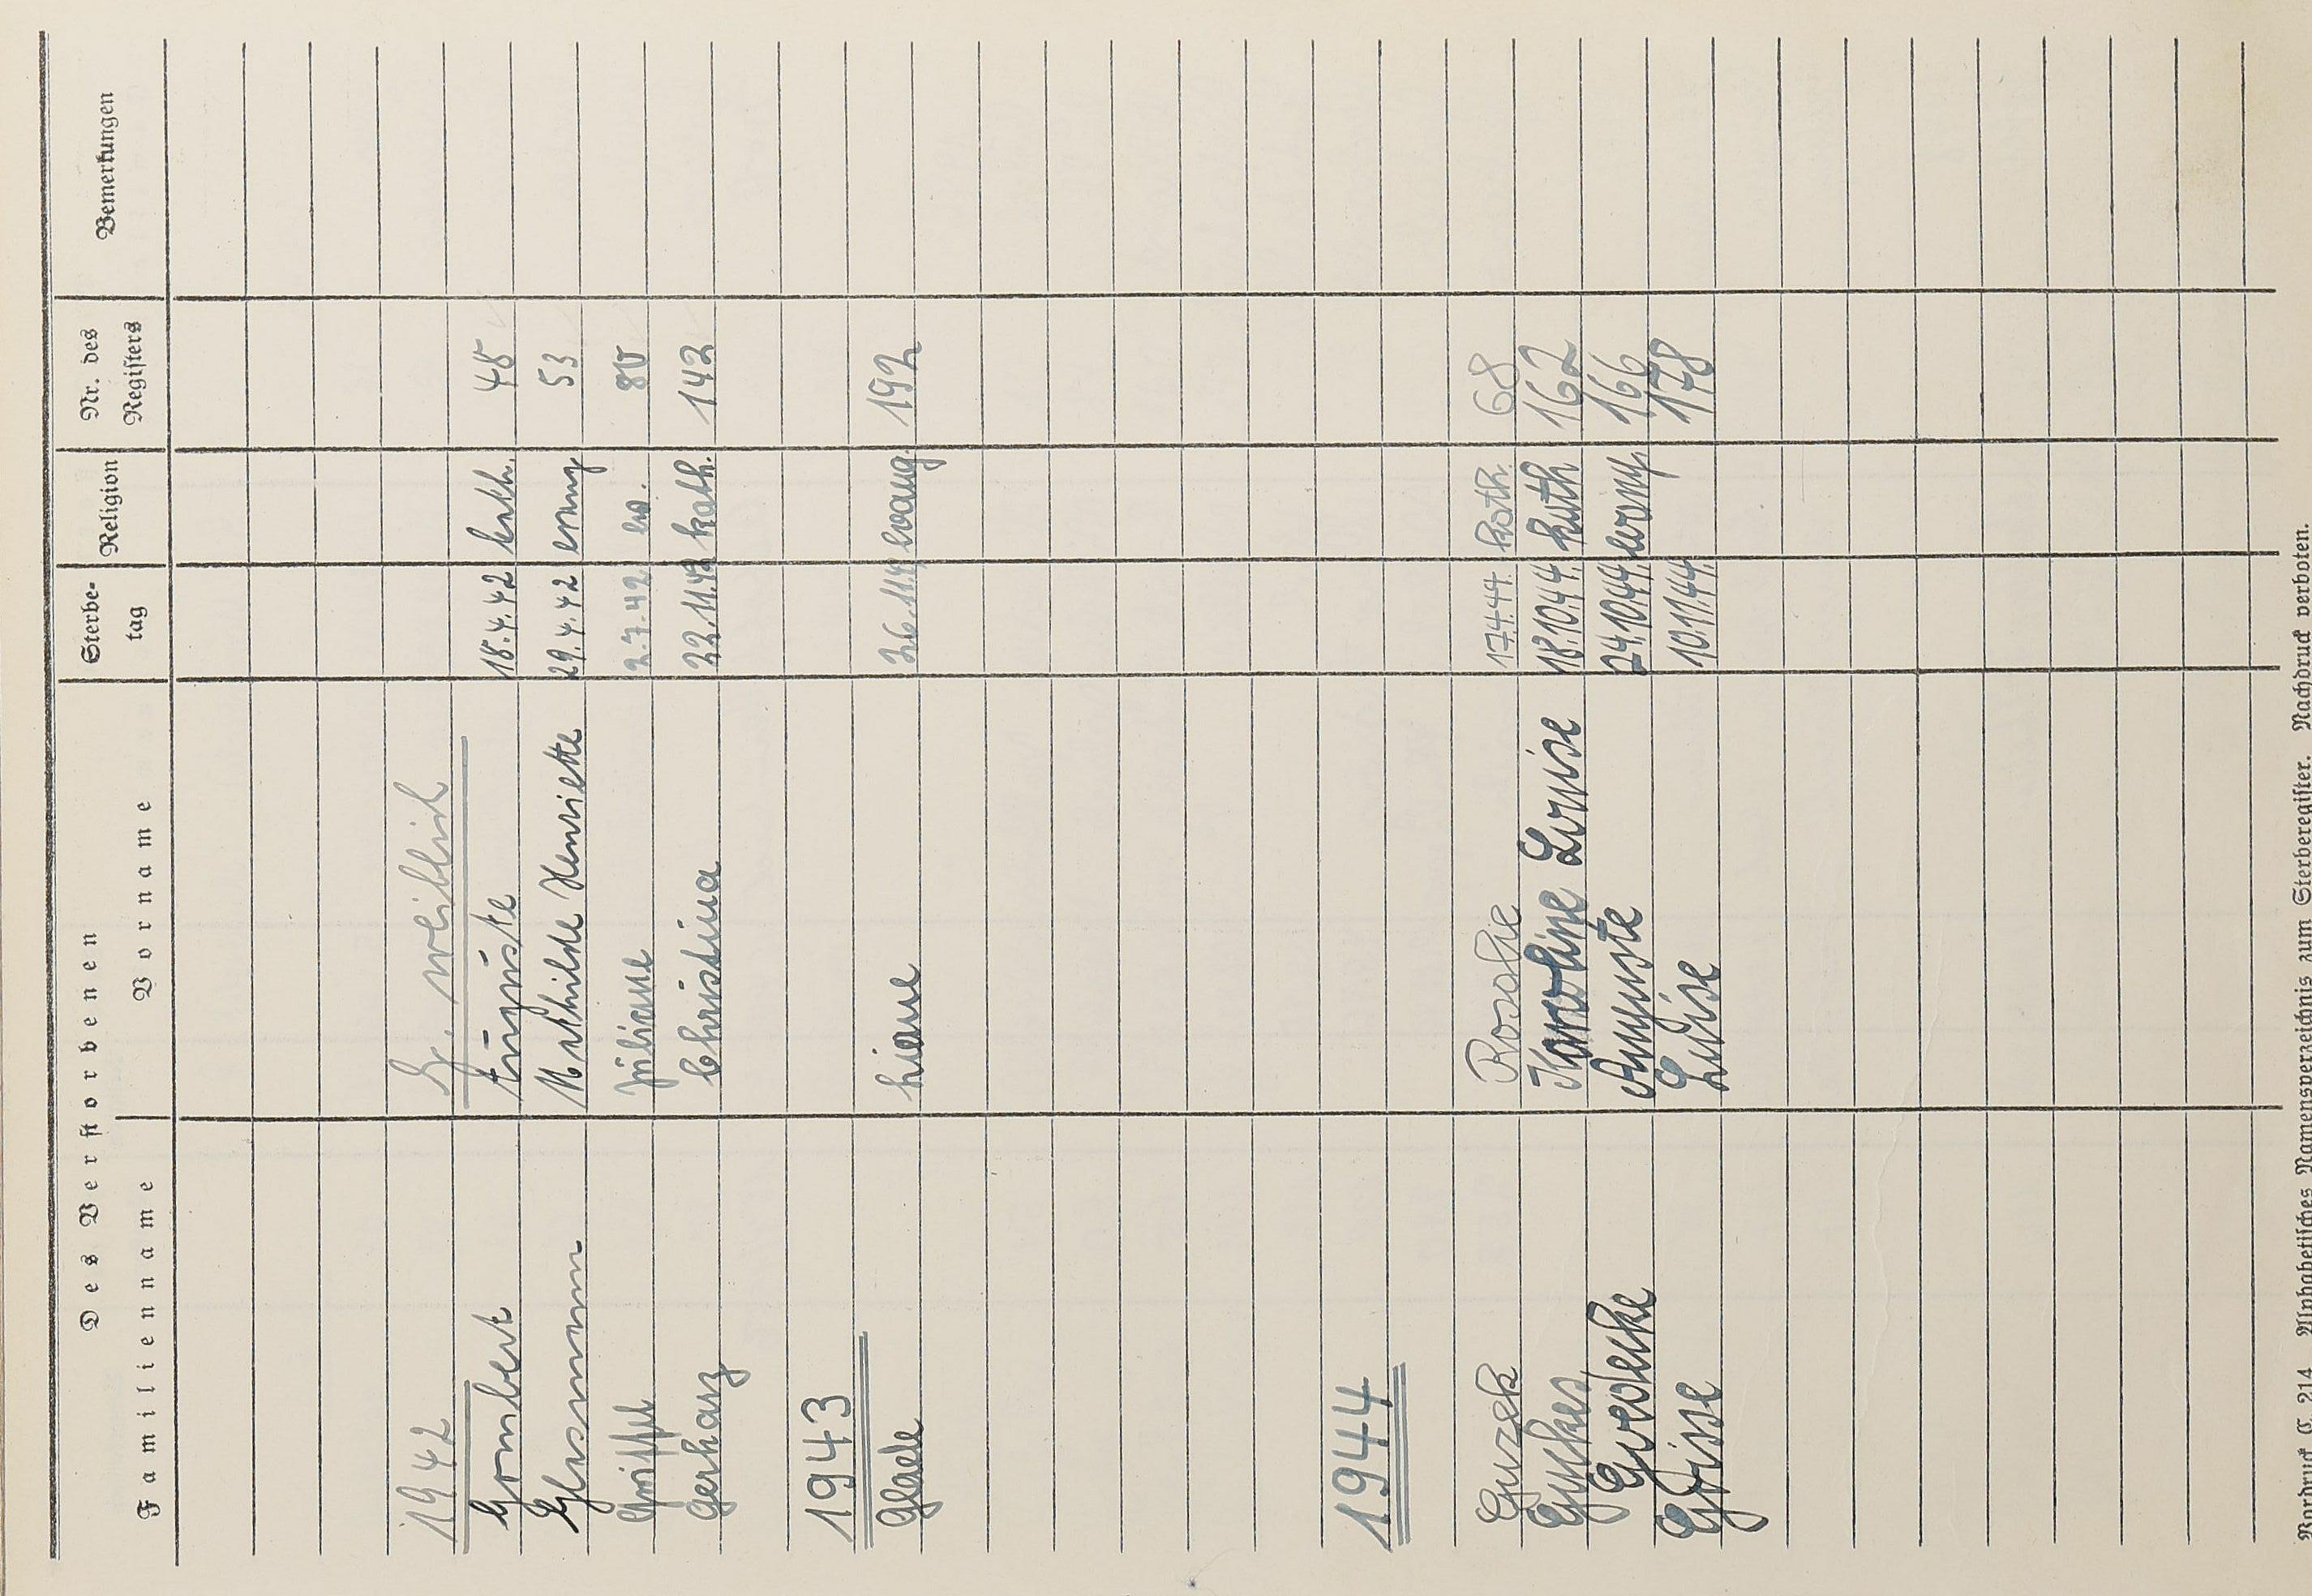 Des Verstorbenen Sterbe- Religion Nr. des Bemerkungen
Familienname Vorname tag Registers
1942 G. weiblich
Gombert Auguste 18.4.42 kath. 48
Glesmann Mathilde Henriette 29.4.42 evang 53
Juliane 2.7.42 ev. 80
Gerharz Christina 22.11.42 kath. 142
1943
Glaele Liane evang. 192
1944
Guzek Rosalie 17.4.44. kath. 68
Karoline Louise 18.10.44. kath 162
Goedecke Auguste 24.10.44. evang. 166
Luise 10.11.44. 178
Vordruck C 214 Alphabetisches Namensverzeichnis zum Sterberegister. Nachdruck verboten.